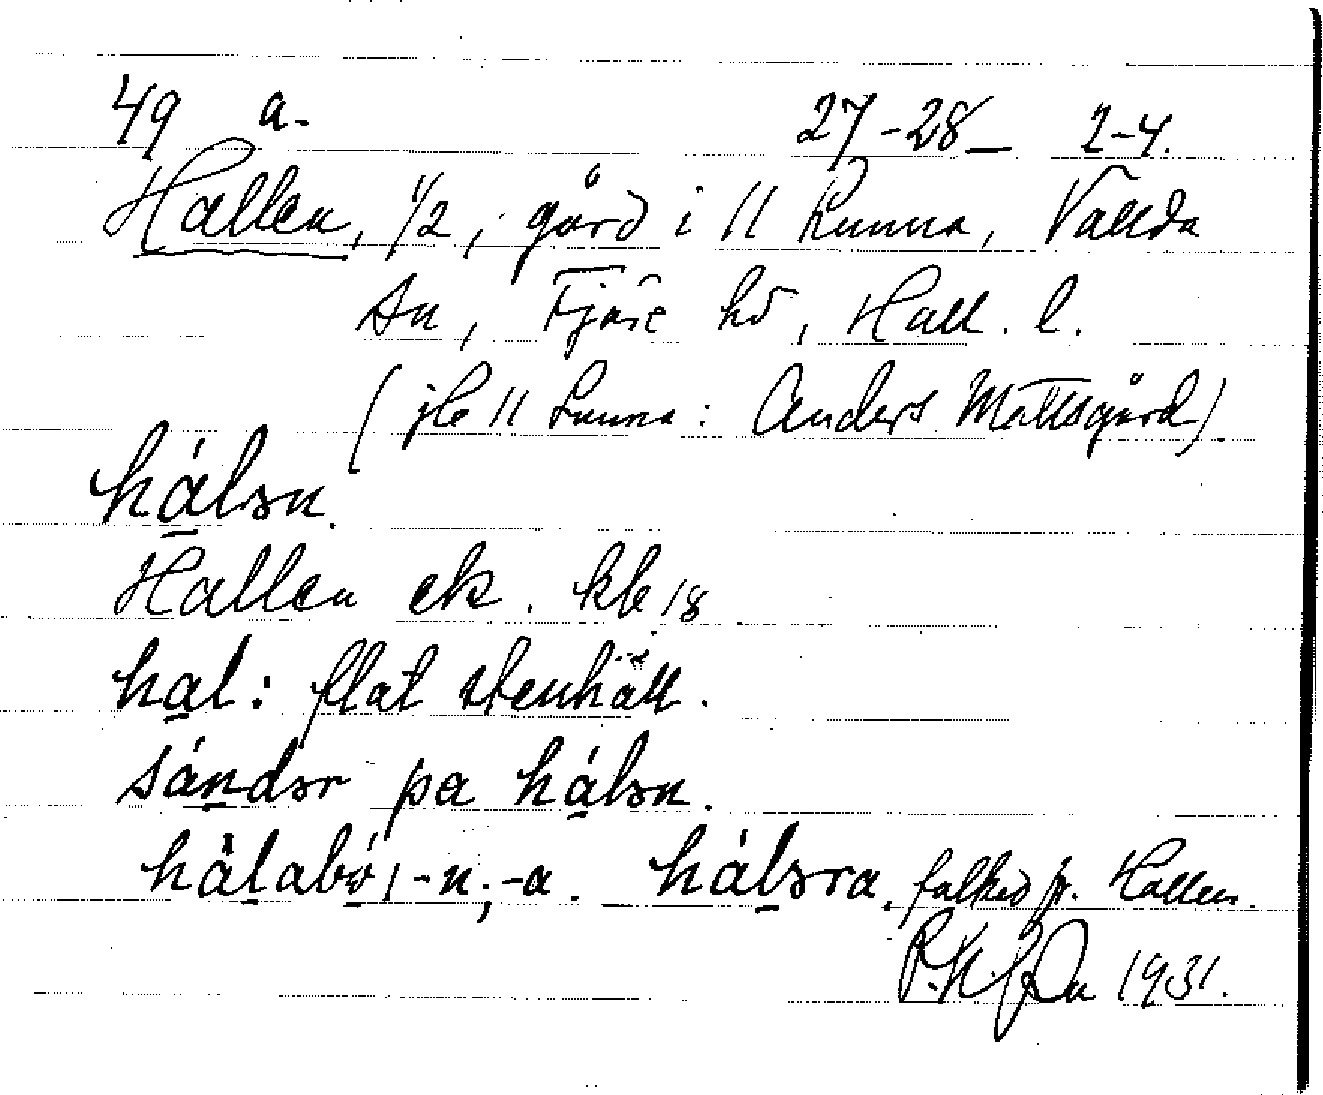 49 a. 27-28– 2-4.
Hallen, 1/2, gård i 11 Lunna, Vallda
sn, Fjäre hd, Hall. l.
(jfe 11 Lunna: Anders Mattsgård)
hálən.
Hallen ek. kbl 18
hal: flat stenhäll.
sándər pa hálən.
hàlabo, -n; -a. háləra, folket fr. Hallen.
1931.